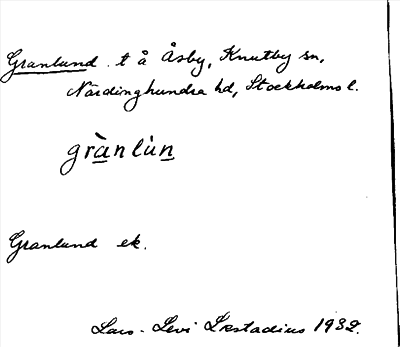 Granlund. t å Åsby, Knutby sn,
Närdinghundra hd, Stockholms l.
grànlùn
Granlund ek.
Lars-Levi Læstadius 1932.